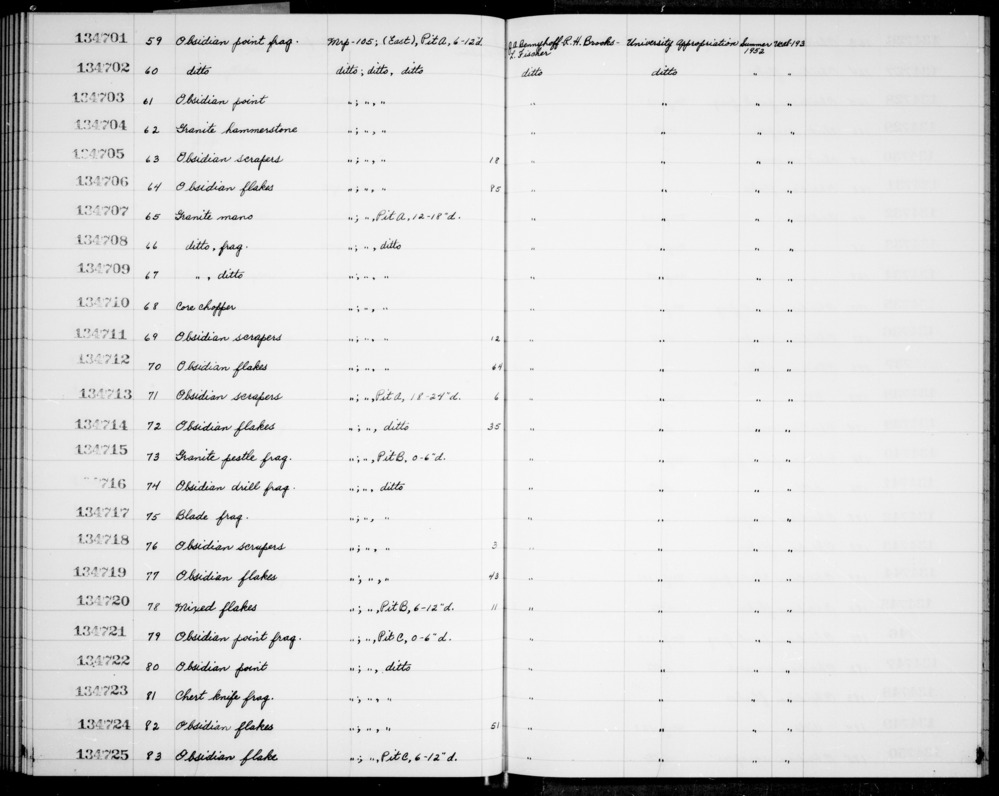 134701 59 Obsidian point frag. Mrp-105; (East), Pit A, 6-12"d. J.A. Bennyhoff-R.H. Brooks- University Appropriation Summer
L. Fischer 1952
134702 60 ditto ditto; ditto, ditto ditto ditto " "
134703 61 Obsidian point "; ", " " " " "
134704 62 Granite hammerstone "; ", " " " " "
134705 63 Obsidian scrapers "; ", " 18 " " " "
134706 64 Obsidian flakes "; ", " 95 " " " "
134707 65 Granite mano "; ", Pit A, 12-18"d. " " " "
134708 66 ditto, frag. "; ", ditto " " " "
134709 67 ", ditto "; ", " " " " "
134710 68 Core chopper "; ", " " " " "
134711 69 Obsidian scrapers "; ", " 12 " " " "
134712 70 Obsidian flakes "; ", " 64 " " " "
134713 71 Obsidian scrapers "; ", Pit A, 18-24"d. 6 " " " "
134714 72 Obsidian flakes "; ", ditto 35 " " " "
134715 73 Granite pestle frag. "; ", Pit B, 0-6"d. " " " "
716 74 Obsidian drill frag. "; ", ditto " " " "
134717 75 Blade frag. "; ", " " " " "
134718 76 Obsidian scrapers "; ", " 3 " " " "
134719 77 Obsidian flakes "; ", " 43 " " " "
134720 78 Mixed flakes "; ", Pit B, 6-12"d. 11 " " " "
134721 79 Obsidian point frag. "; ", Pit C, 0-6"d. " " " "
134722 80 Obsidian point "; ", ditto " " " "
134723 81 Chert knife frag. "; ", " " " " "
134724 82 Obsidian flakes "; ", " 51 " " " "
134725 83 Obsidian flake "; ", Pit C, 6-12"d. " " " "